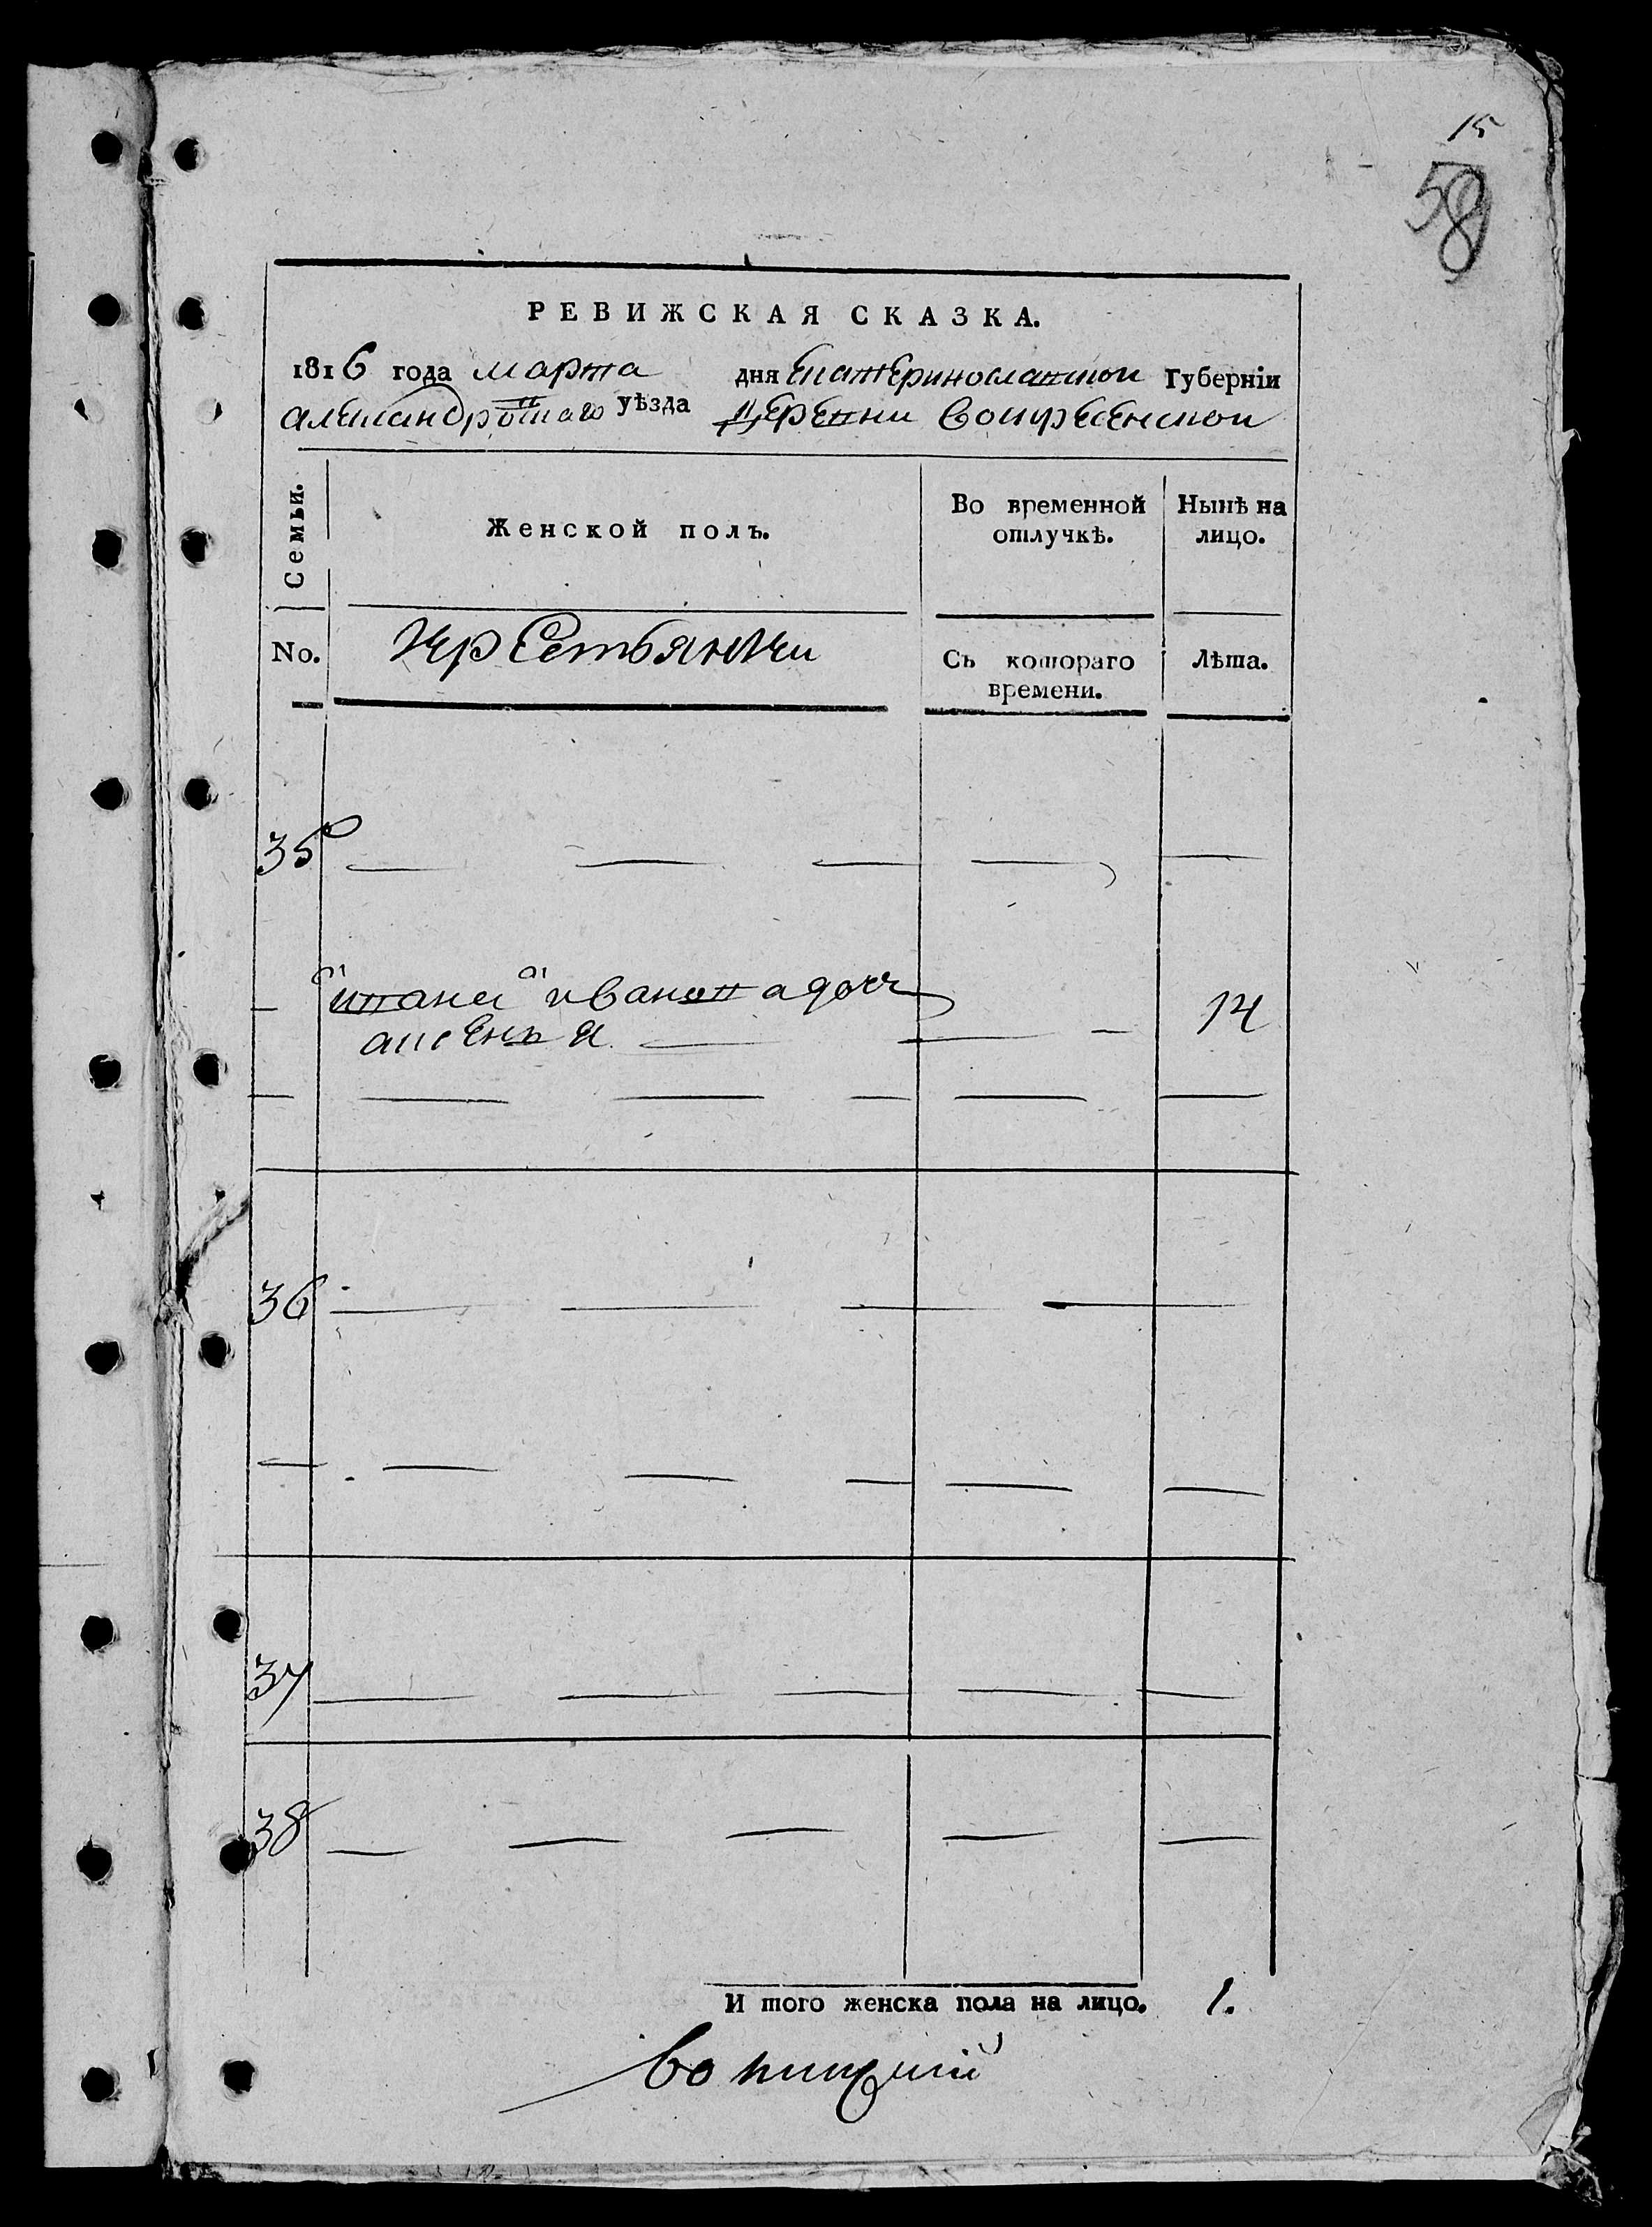 15
58
РЕВИЖСКАЯ СКАЗКА.
1816 года марта дня Екатеринославской Губерніи
александровскаго уѣзда деревни воскресенской
Семьи.
Женской полъ.
Во временной отлучкѣ.
Нынѣ на лицо.
No.
Крестьянки
Съ котораго времени.
Лѣта.
35
ивана иванова дочь
аксенья 14
36
37
38
И того женска пола на лицо. 1.